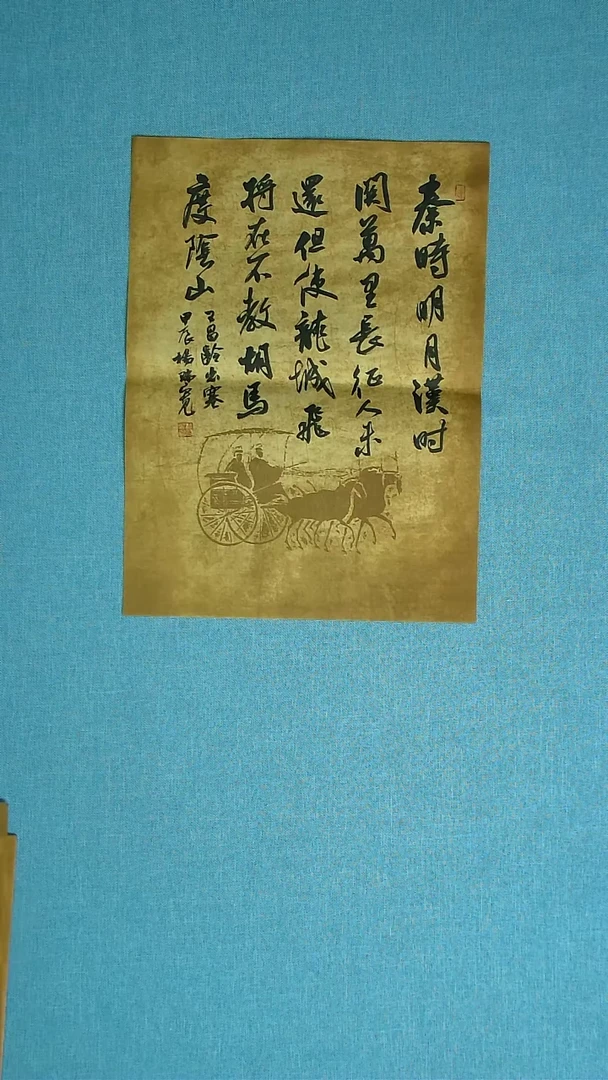 秦時明月漢时
関萬里長征人未
還但使龍城飛
将在不教胡馬
度陰山
王昌齡出塞
甲辰楊